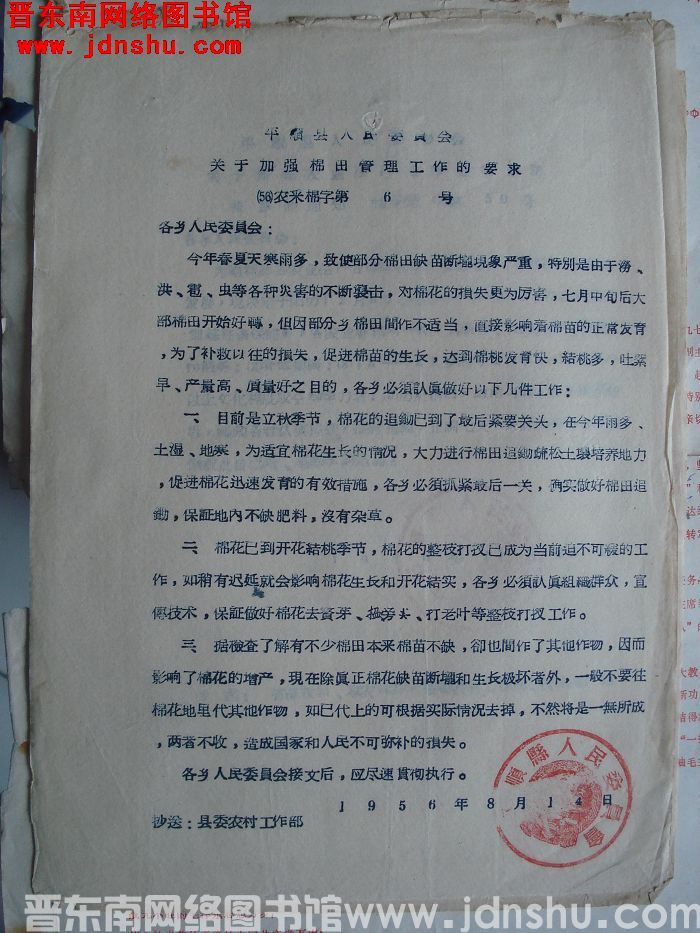 晋东南网络图书馆
www.jdnshu.com
平順县人民委員会
关于加强棉田管理工作的要求
(56)农采棉字第 6 号
各乡人民委員会：
今年春夏天寒雨多，致使部分棉田缺苗断壠現象严重，特别是由于澇、
洪、雹、虫等各种災害的不断襲击，对棉花的損失更为厉害，七月中旬后大
部棉田开始好轉，但因部分乡棉田間作不适当，直接影响着棉苗的正常发育
，为了补救以往的損失，促进棉苗的生长，达到棉桃发育快，結桃多，吐絮
早、产量高、質量好之目的，各乡必須認眞做好以下几件工作：
一、目前是立秋季节，棉花的追鋤已到了最后紧要关头，在今年雨多、
土湿、地寒，为适宜棉花生长的情况，大力进行棉田追鋤疏松土壤培养地力
，促进棉花迅速发育的有效措施，各乡必須抓紧最后一关，确实做好棉田追
鋤，保証地內不缺肥料，沒有杂草。
二、棉花已到开花結桃季节，棉花的整枝打杈已成为当前迫不可緩的工
作，如稍有迟延就会影响棉花生长和开花結实，各乡必須認眞組織群众，宣
傳技术，保証做好棉花去贅芽、 旁尖、打老叶等整枝打杈工作。
三、据檢查了解有不少棉田本来棉苗不缺，卻也間作了其他作物，因而
影响了棉花的增产，現在除眞正棉花缺苗断壠和生长极坏者外，一般不要往
棉花地里代其他作物，如已代上的可根据实际情况去掉，不然将是一無所成
，两者不收，造成国家和人民不可弥补的損失。
各乡人民委員会接文后，应尽速貫彻执行。
1956年8月14日
順縣人民委員會
抄送：县委农村工作部
晋东南网络图书馆www.jdnshu.com